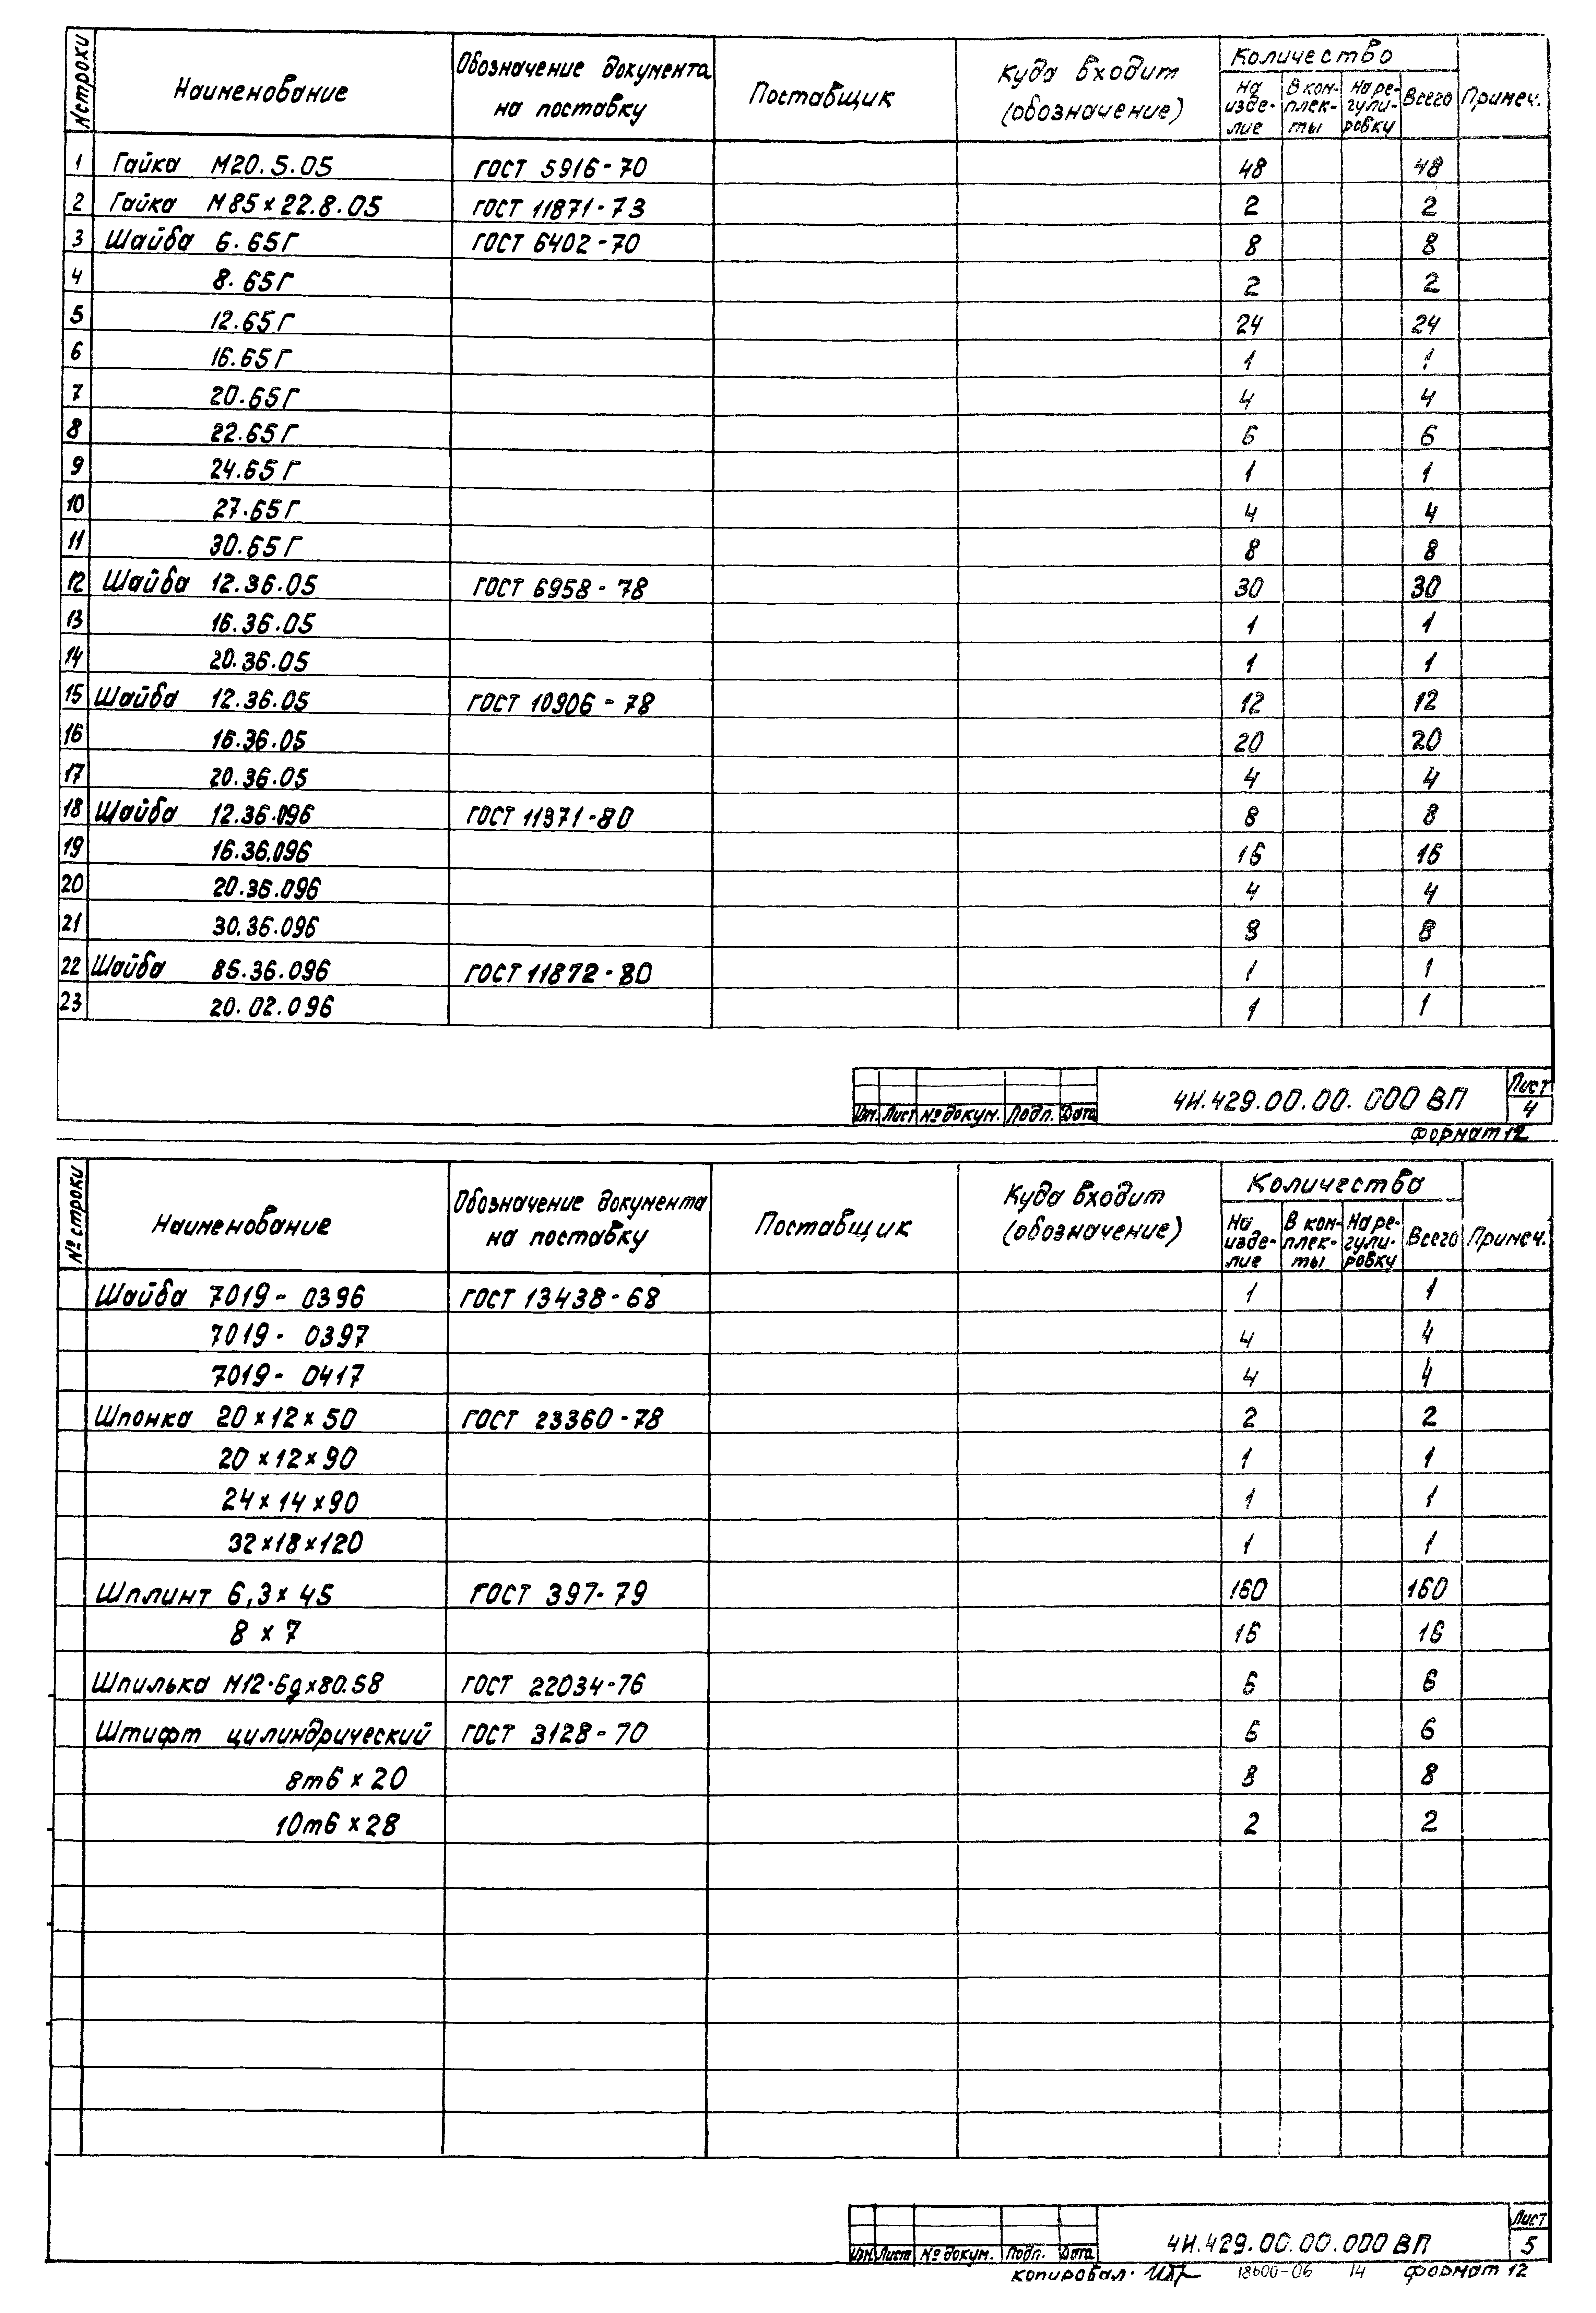 № строки Наименование Обозначение документа на поставку Поставщик Куда входит (обозначение) Количество Примеч.
На изде- лие В ком- плек- ты На ре- гули- ровку Всего
1 Гайка М20.5.05 ГОСТ 5916-70 48 48
2 Гайка М85×22.8.05 ГОСТ 11871-73 2 2
3 Шайба 6.65Г ГОСТ 6402-70 8 8
4 8.65Г 2 2
5 12.65Г 24 24
6 16.65Г 1 1
7 20.65Г 4 4
8 22.65Г 6 6
9 24.65Г 1 1
10 27.65Г 4 4
11 30.65Г 8 8
12 Шайба 12.36.05 ГОСТ 6958-78 30 30
13 16.36.05 1 1
14 20.36.05 1 1
15 Шайба 12.36.05 ГОСТ 10906-78 12 12
16 16.36.05 20 20
17 20.36.05 4 4
18 Шайба 12.36.096 ГОСТ 11371-80 8 8
19 16.36.096 16 16
20 20.36.096 4 4
21 30.36.096 8 8
22 Шайба 85.36.096 ГОСТ 11872-80 1 1
23 20.02.096 1 1
Изм. Лист № докум. Подп. Дата 4И.429.00.00.000 ВП Лист 4
Формат 12
№ строки Наименование Обозначение документа на поставку Поставщик Куда входит (обозначение) Количества Примеч.
На изде- лие В ком- плек- ты На ре- гули- ровку Всего
Шайба 7019-0396 ГОСТ 13438-68 1 1
7019-0397 4 4
7019-0417 4 4
Шпонка 20×12×50 ГОСТ 23360-78 2 2
20×12×90 1 1
24×14×90 1 1
32×18×120 1 1
Шплинт 6,3×45 ГОСТ 397-79 160 160
8×7 16 16
Шпилька М12-6g×80.58 ГОСТ 22034-76 6 6
Штифт цилиндрический ГОСТ 3128-70 6 6
8m6×20 8 8
10m6×28 2 2
Изм. Лист № докум. Подп. Дата 4И.429.00.00.000 ВП Лист 5
Копировал. 18600-06 14 Формат 12